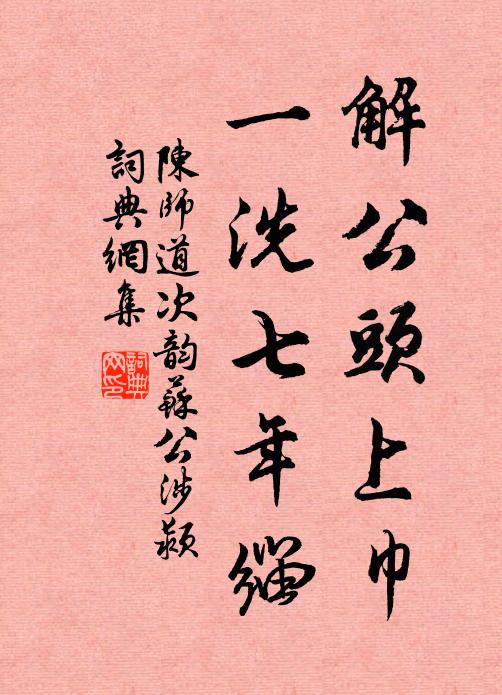 解公頭上巾
一洗七年緇
陳師道次韵蘇公涉潁
詞典網集
詞典網印